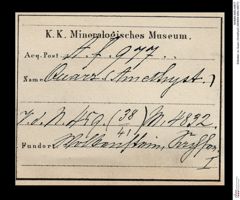 K. K. Mineralogisches Museum.
Acq. Post. A. f. 977.
Name Quarz (Amethyst.)
J. d. N. 459. (38/41) M. 4832.
Fundort Wolkenstein, Sachsen
I